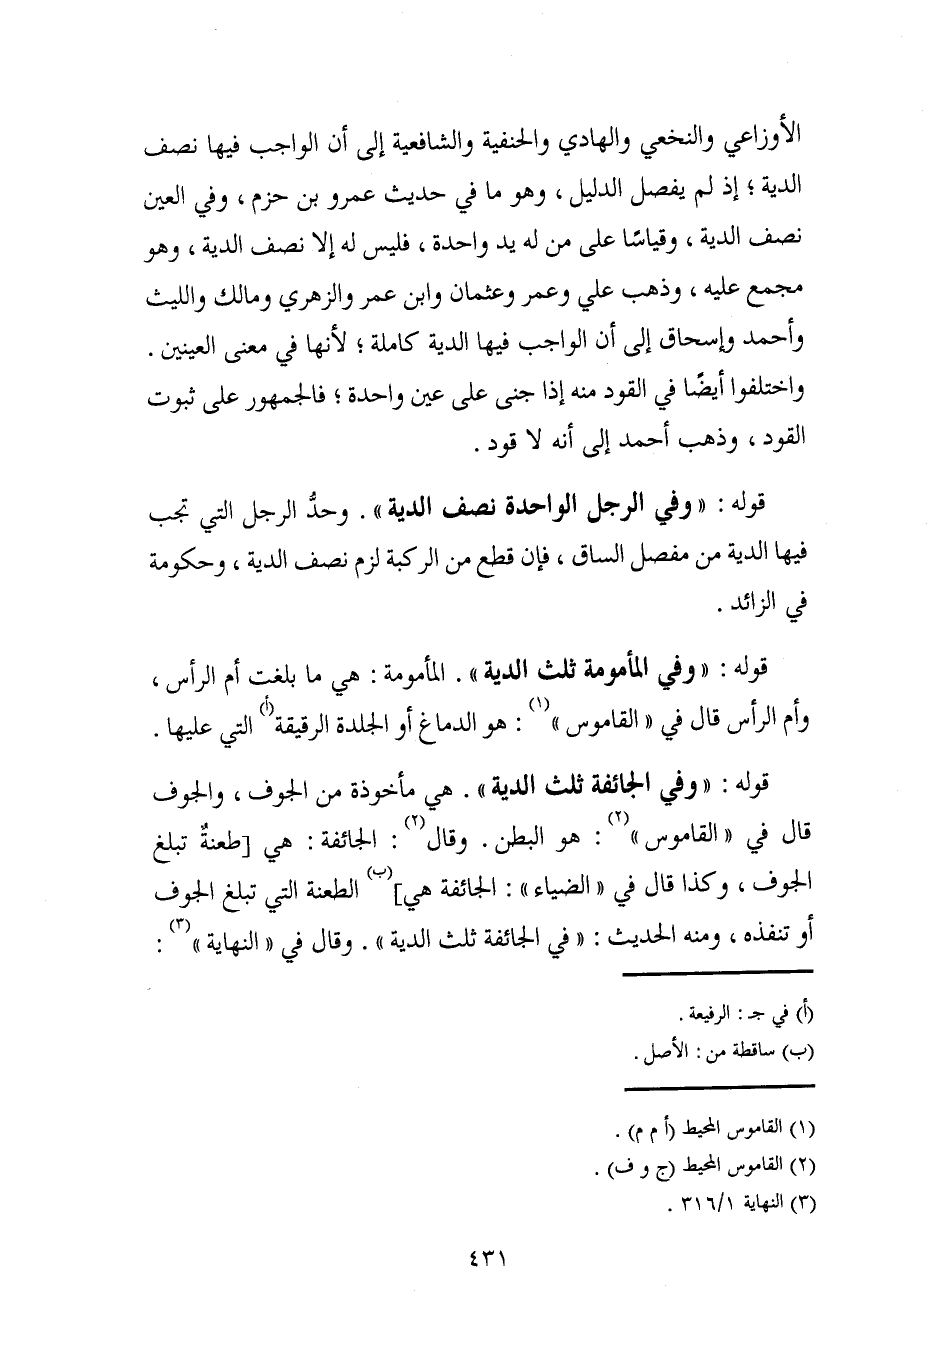 الأوزاعي والنخعي والهادي والحنفية والشافعية إلى أن الواجب فيها نصف
الدية ؛ إذ لم يفصل الدليل ، وهو ما في حديث عمرو بن حزم ، وفي العين
نصف الدية ، وقياسًا على من له يد واحدة ، فليس له إلا نصف الدية ، وهو
مجمع عليه ، وذهب علي وعمر وعثمان وابن عمر والزهري ومالك والليث
وأحمد وإسحاق إلى أن الواجب فيها الدية كاملة ؛ لأنها في معنى العينين .
واختلفوا أيضًا في القود منه إذا جنى على عين واحدة ؛ فالجمهور على ثبوت
القود ، وذهب أحمد إلى أنه لا قود .
قوله : « وفي الرجل الواحدة نصف الدية » . وحدُّ الرجل التي تجب
فيها الدية من مفصل الساق ، فإن قطع من الركبة لزم نصف الدية ، وحكومة
في الزائد .
قوله : « وفي المأمومة ثلث الدية » . المأمومة : هي ما بلغت أم الرأس ،
وأم الرأس قال في « القاموس »(١) : هو الدماغ أو الجلدة الرقيقة(أ) التي عليها .
قوله : « وفي الجائفة ثلث الدية » . هي مأخوذة من الجوف ، والجوف
قال في « القاموس »(٢) : هو البطن . وقال(٢) : الجائفة : هي [طعنةٌ تبلغ
الجوف ، وكذا قال في « الضياء » : الجائفة هي](ب) الطعنة التي تبلغ الجوف
أو تنفذه ، ومنه الحديث : « في الجائفة ثلث الدية » . وقال في « النهاية »(٣) :
(أ) في جـ : الرفيعة .
(ب) ساقطة من : الأصل .
(١) القاموس المحيط (أ م م) .
(٢) القاموس المحيط (ج و ف) .
(٣) النهاية ٣١٦/١ .
٤٣١